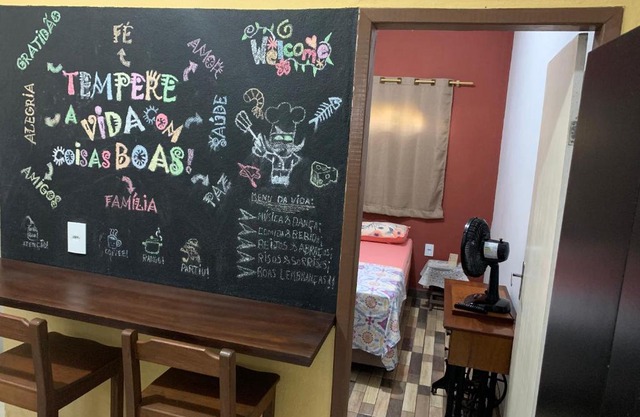 GRATIDÃO
FÉ
AMOR
Welcome
ALEGRIA
TEMPERE
A VIDA COM
COISAS BOAS!
SAÚDE
AMIGOS
FAMÍLIA
PAZ
MENU DA VIDA:
MÚSICA & DANÇA;
COMIDA & BEBIDA;
BEIJOS & ABRAÇOS;
RISOS & SORRISOS;
BOAS LEMBRANÇAS!!
ATENÇÃO!
COFFEE!
RANGO!
PARTIU!